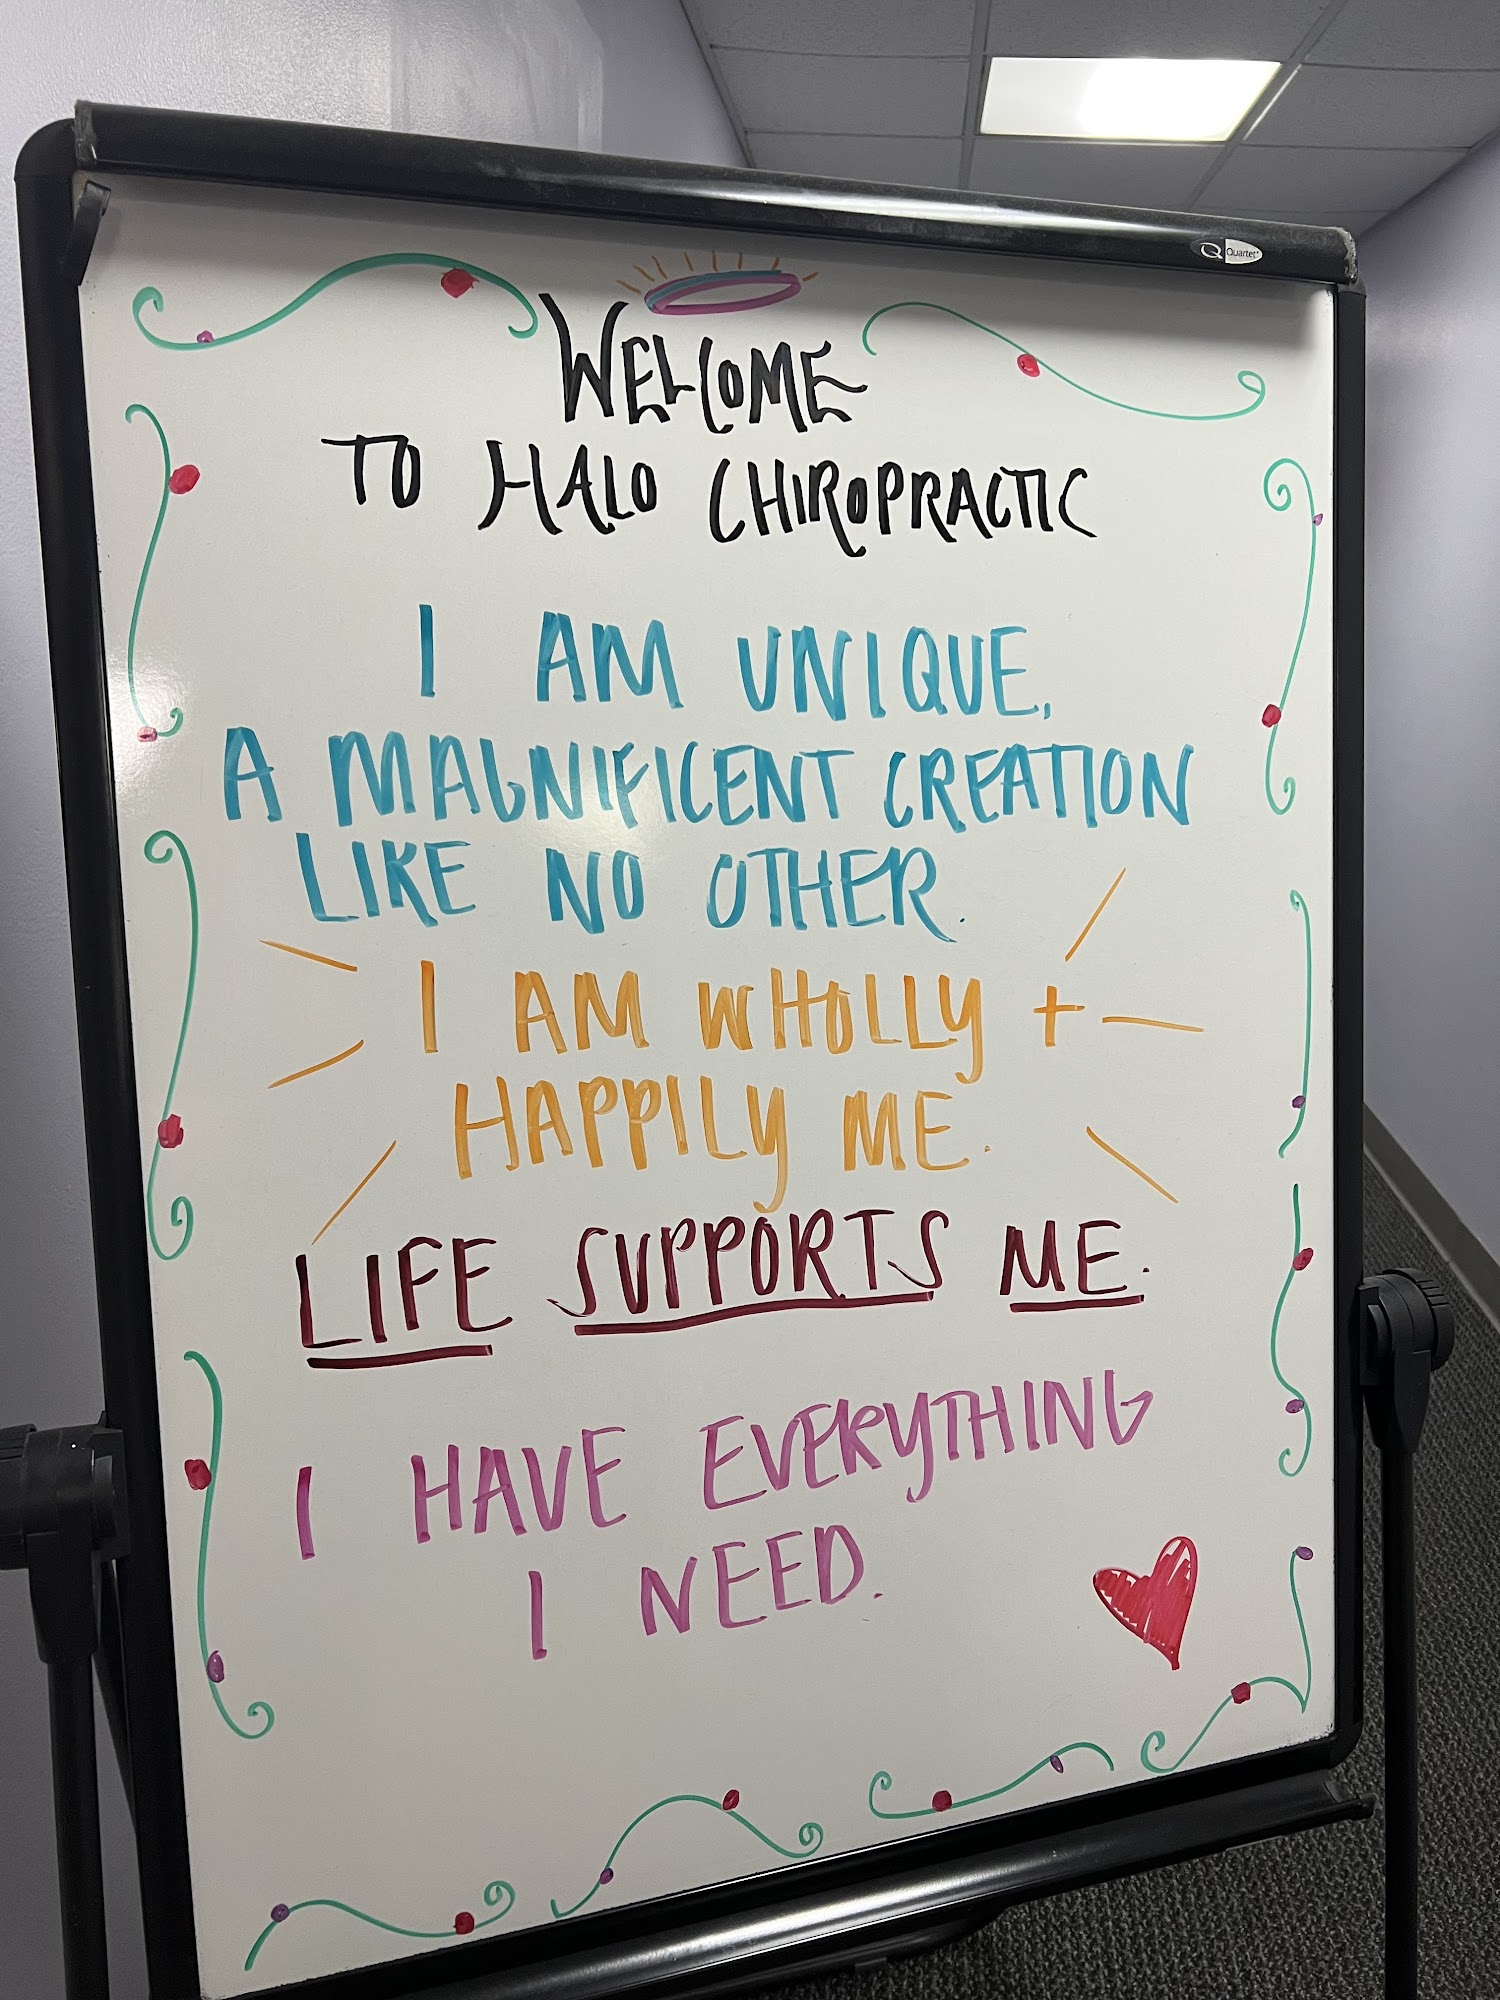 Quartet
WELCOME
TO HALO CHIROPRACTIC
I AM UNIQUE,
A MAGNIFICENT CREATION
LIKE NO OTHER.
I AM WHOLLY +
HAPPILY ME.
LIFE SUPPORTS ME.
I HAVE EVERYTHING
I NEED.